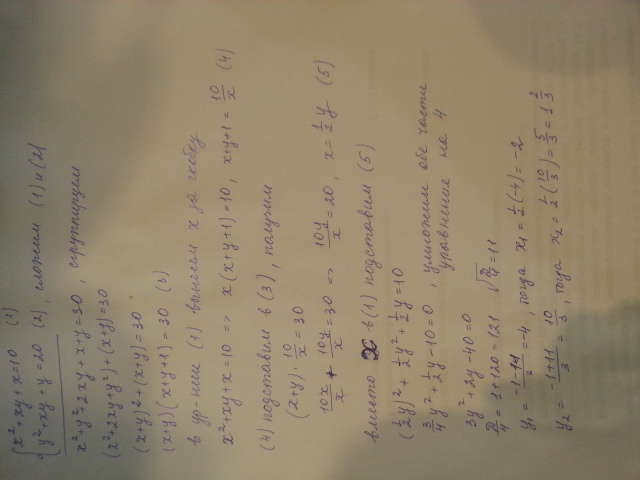 {x²+xy+x=10 (1)
{y²+xy+y=20 (2), сложим (1) и (2)
x²+y²+2xy+x+y=30, сгруппируем
(x²+2xy+y²)+(x+y)=30
(x+y)²+(x+y)=30
(x+y)(x+y+1)=30 (3)
в ур-нии (1) вынесем x за скобку
x²+xy+x=10 => x(x+y+1)=10, x+y+1=10/x (4)
(4) подставим в (3), получим
(x+y)·10/x=30
10x/x+10y/x=30 => 10y/x=20, x=1/2y (5)
вместо x в (1) подставим (5)
(1/2y)²+1/2y²+1/2y=10
3/4y²+1/2y-10=0, умножим обе части
уравнения на 4
3y²+2y-40=0
D/4=1+120=121 √D/4=11
y₁=-1-11/3=-4, тогда x₁=1/2(-4)=-2
y₂=-1+11/3=10/3, тогда x₂=1/2(10/3)=5/3=1 2/3